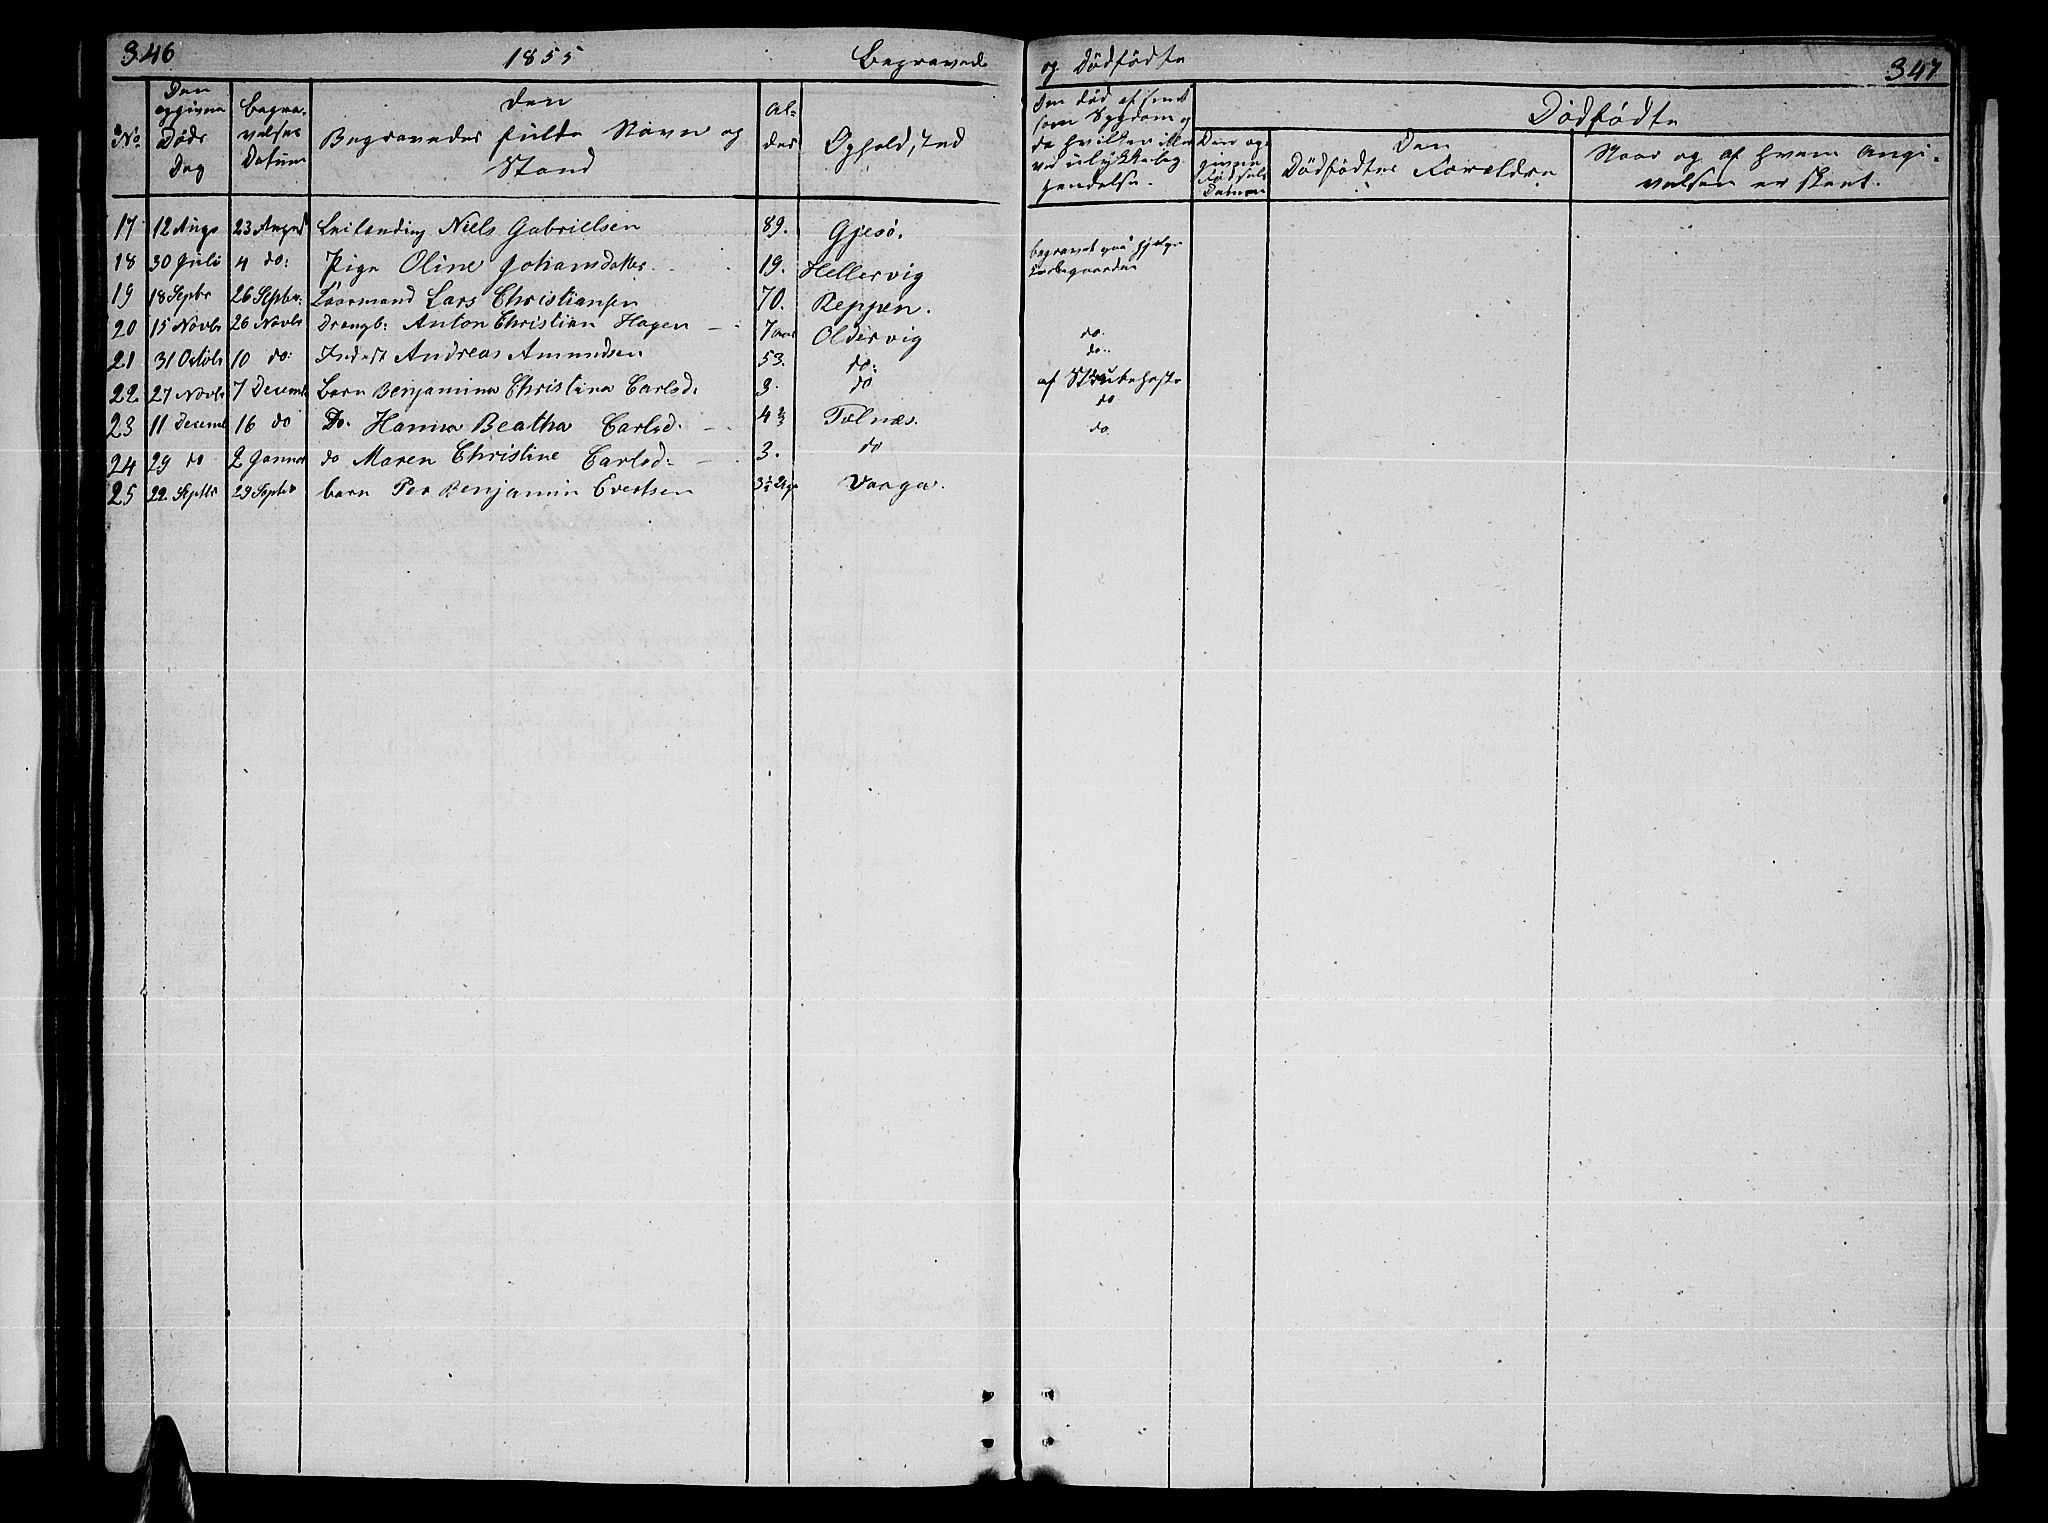 346 1855 Begravede og Dødfødte 347
No. Den opgivne Døds Dag Begravelses Datum Den Begravedes fulde Navn og Stand Alder Opholdsted Den død af smitsom Sygdom og da hvilken eller ved ulykkelig hendelse. Dødfødte
Den opgivne Fødsels Datum Den Dødfødtes Forældre Naar og af hvem Angivelsen er skeet.
17 12 Augs 23 August Leilending Niels Gabrielsen 89. Gjesø.
18 30 Juli 4 do: Pige Oline Johansdatter. 19. Hellervig begravet paa
19 18 Septbr 26 Septbr: Lars Christiansen 70. Reppen.
20 15 Novbr 26 Novbr Drengb: Anton Christian Hagen 7 aar Oldervig do.
21 31 Octobr 10 do: Inderst Andreas Amundsen 53. do: do.
22. 27 Novbr 7 Decembr Barn Benjamina Christina Carlsd. 3. do af Strubehoste
23 11 Decembr 16 do Do. Hanna Beatha Carlsd. 4 Tolnæs. do
24 29 do 2 Januar do Maren Christine Carlsd: 3. do do.
25 22 Septbr 29 Septbr barn Per Benjamin Evertsen 3½ Uge Vanga.